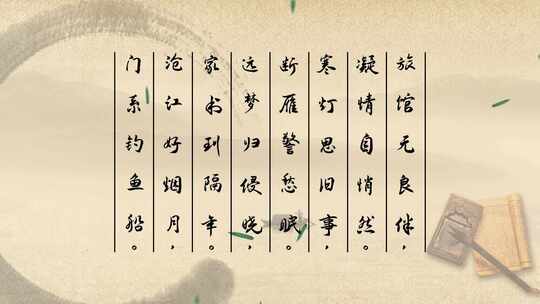 旅馆无良伴，
凝情自悄然。
寒灯思旧事，
断雁警愁眠。
远梦归侵晓，
家书到隔年。
沧江好烟月，
门系钓鱼船。